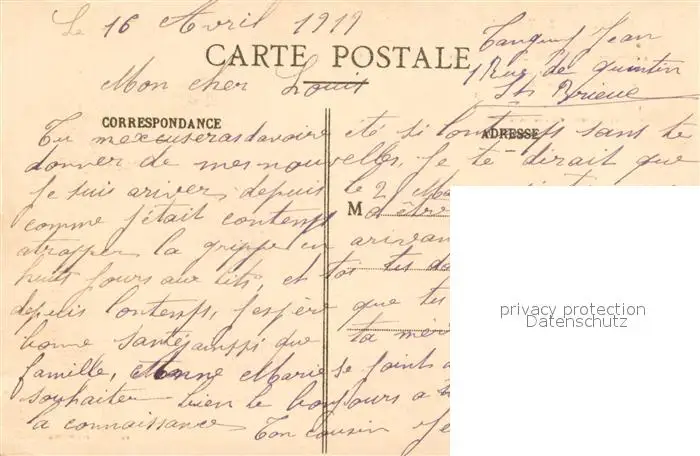 Le 16 Avril 1919
Tanguy Jean
CARTE POSTALE
1 Rue de quintin
Mon cher Louis
St Brieuc
CORRESPONDANCE
ADRESSE
Tu mexcuseras davoire été si lontemps sans te
donner de mes nouvelles, Je te dirait que
Je suis ariver depuis le 2 Ma
comme j'était contemps d être
M
atrapper la grippe en arivan
huit jours aux lits, et toi tu do
depuis lontemps, J'espère que tu
bonne santé ainssi que ta mèr
famille, Marie se joints a
souhaiter bien le bonjours a
a connaissance Ton cousin Je
privacy protection
Datenschutz